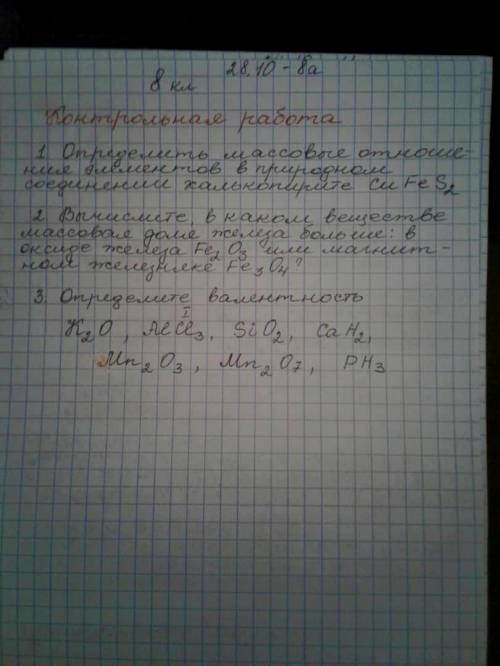 28.10 - 8а
8 кл
Контрольная работа
1. Определить массовые отноше-
ния элементов в природном
соединении халькопирите CuFeS2
2. Вычислите, в каком веществе
массовая доля железа больше: в
оксиде железа Fe2O3 или магнит-
ном железняке Fe3O4?
3. Определите валентность
I
K2O, AlCl3, SiO2, CaH2,
Mn2O3, Mn2O7, PH3